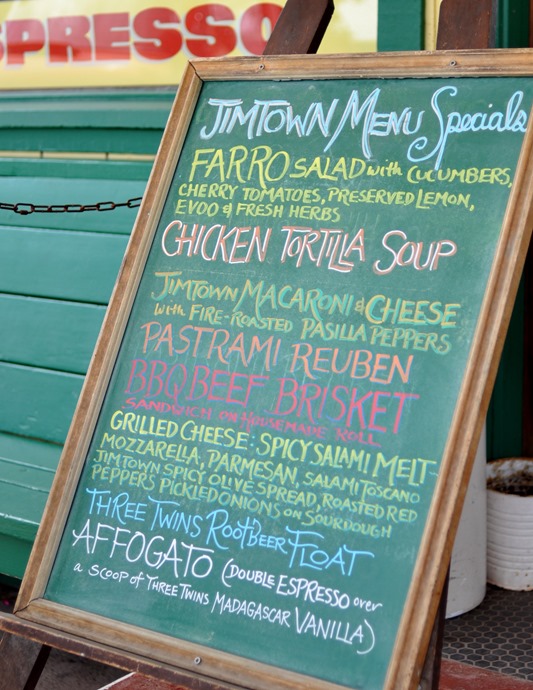 SPRESSO
JIMTOWN MENU Specials
FARRO SALAD with CUCUMBERS,
CHERRY TOMATOES, PRESERVED LEMON,
EVOO & FRESH HERBS
CHICKEN TORTILLA SOUP
JIMTOWN MACARONI & CHEESE
with FIRE-ROASTED PASILLA PEPPERS
PASTRAMI REUBEN
BBQ BEEF BRISKET
SANDWICH ON HOUSEMADE ROLL
GRILLED CHEESE: SPICY SALAMI MELT-
MOZZARELLA, PARMESAN, SALAMI TOSCANO
JIMTOWN SPICY OLIVE SPREAD, ROASTED RED
PEPPERS PICKLED ONIONS on SOURDOUGH
THREE TWINS ROOTBEER FLOAT
AFFOGATO (DOUBLE ESPRESSO over
a SCOOP OF THREE TWINS MADAGASCAR VANILLA)